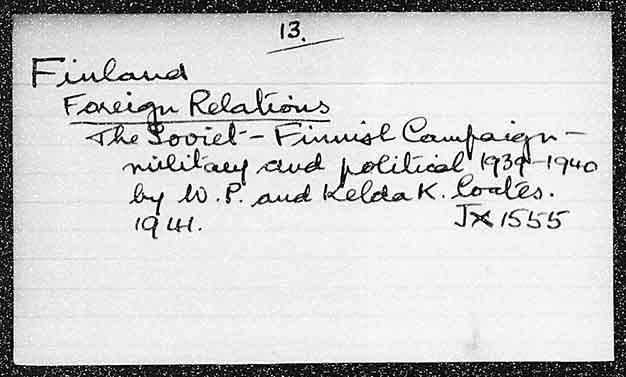 13.
Finland
Foreign Relations
The Soviet-Finnish Campaign -
military and political 1939-1940
by W.P. and Zelda K. Coates.
1941. JX 1555